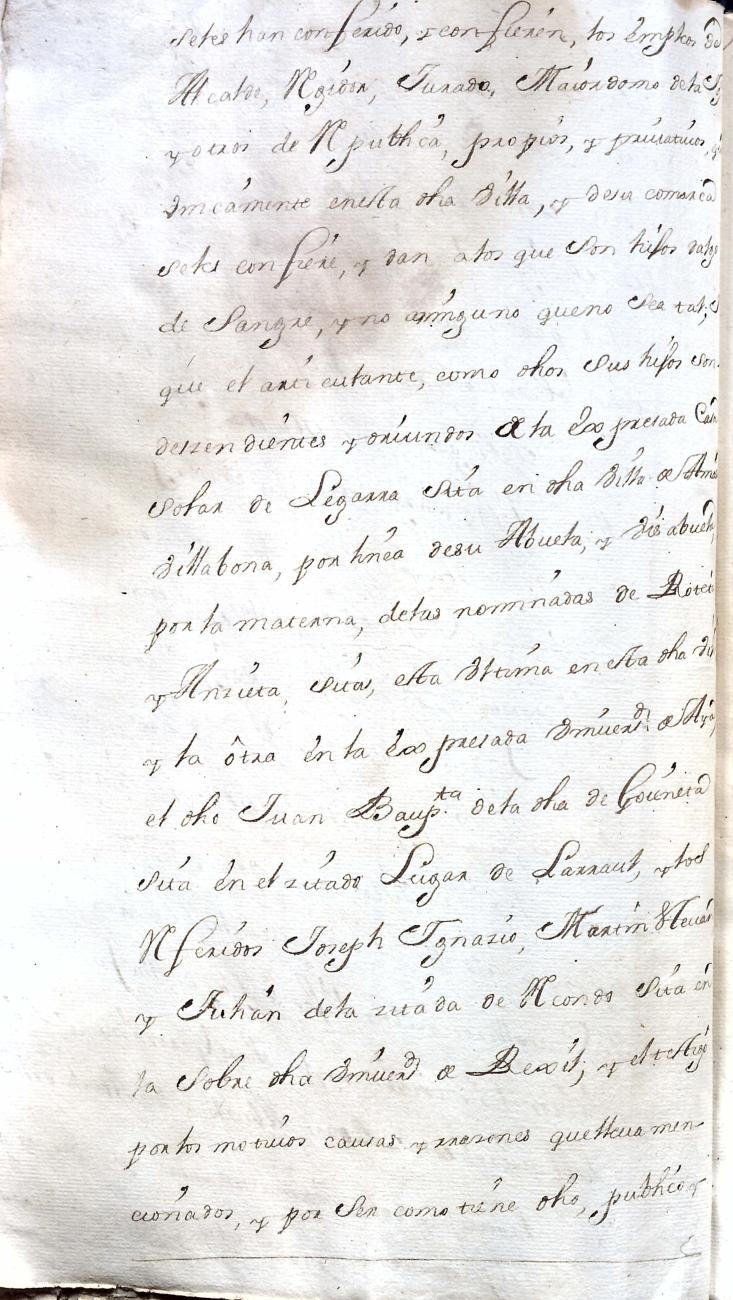 seles han conferido, y confieren, los émpleos de
Alcalde, Rexidor, Jurado, Maiordomo de la Yg
y otros de Rpublica, propios, y privativos, q
Vnicamente en esta dha Villa, y de su comarca
se les confiere, y dan a los que son hijos dalgo
de Sangre, y no aninguno queno Sea tal; S
que el articulante, como dhos Sus hijos son
deszendientes y oriundos de la éxpresada Cas
Solar de Legarra Sita en dha Villa de Ama
Villabona, por linea desu Abuela, y Visabuel
por la materna, delas nominadas de Rotet
y Anzieta, sitas, esta Vltima en esta dha Vi
y la ôtra én la éxpresada Vniversd. de Aya
el dho Juan Baupta. dela dha de Goineta
Sita én el zitado Lugar de Larraul, y los
Rferidos Joseph Ygnazio, Martin Nicuas
y Julián dela zitada de Rcondo Sita én
la Sobre dha Vniversd de Rexil; y el testigo
por los motivos causas y rrazones que lleva men-
cionados, y por Ser como tiene dho, publico y